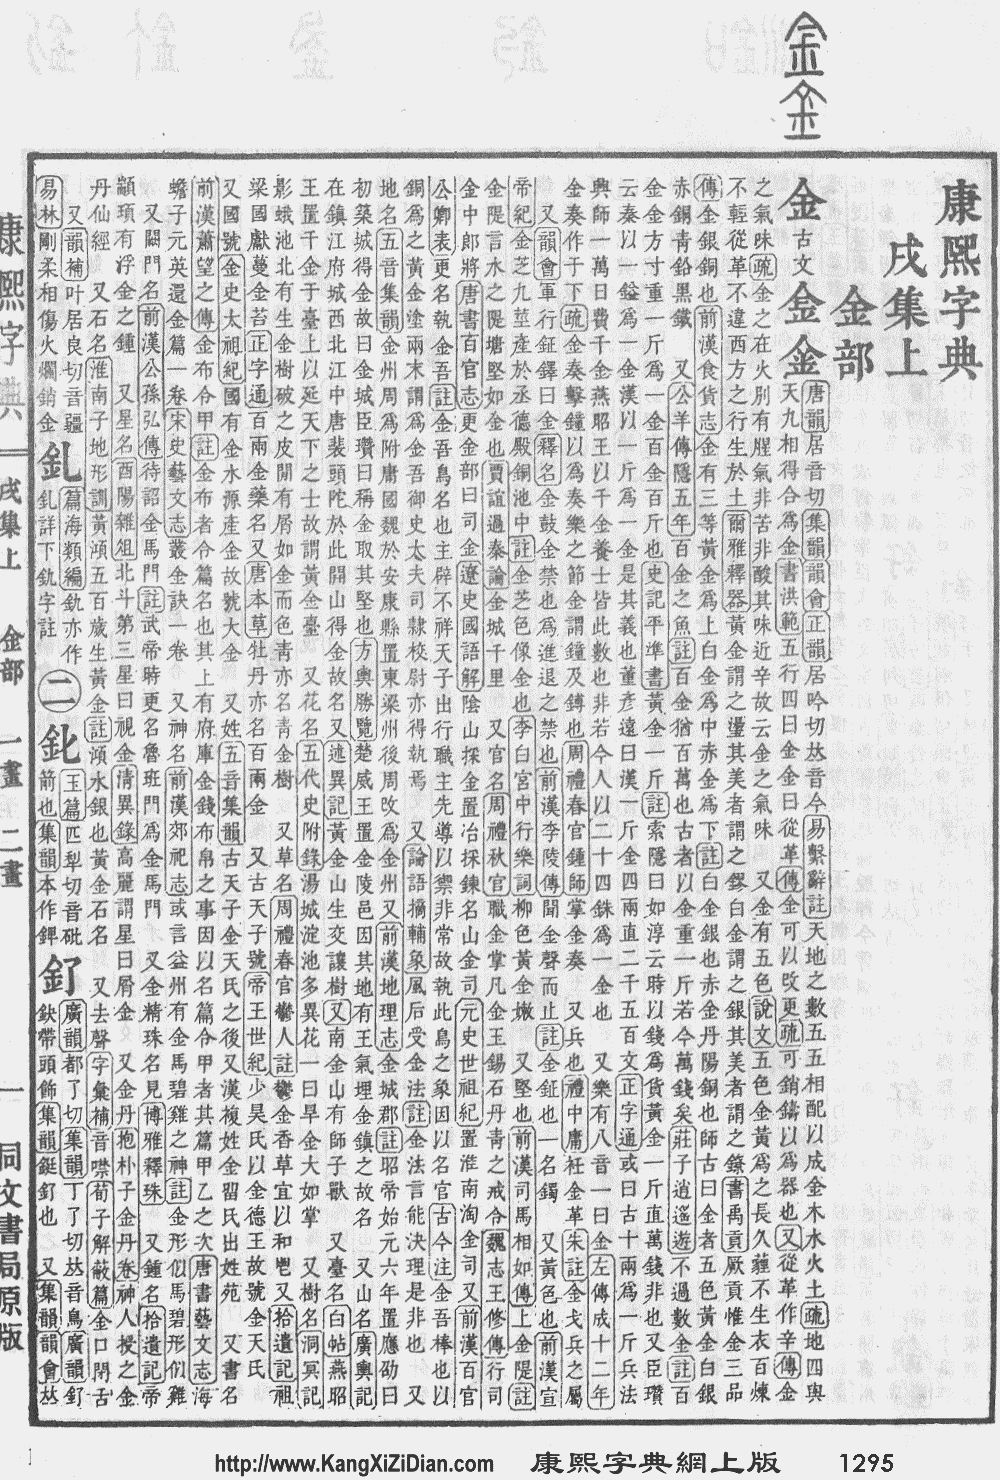 金
金
康熙字典
戌集上
金部
金古文金金
唐韻居音切集韻韻會正韻居吟切𠀤音今易繫辭註天地之數五五相配以成金木水火土疏地四與
天九相得合爲金書洪範五行四曰金金曰從革傳金可以改更疏可銷鑄以爲器也又從革作辛傳金
之氣味疏金之在火別有腥氣非苦非酸其味近辛故云金之氣味 又金有五色說文五色金黃爲之長久薶不生衣百煉
不輕從革不違西方之行生於土爾雅釋器黃金謂之璗其美者謂之鏐白金謂之銀其美者謂之鐐書禹貢厥貢惟金三品
傳金銀銅也前漢食貨志金有三等黃金爲上白金爲中赤金爲下註白金銀也赤金丹陽銅也師古曰金者五色黃金白銀
赤銅靑鉛黑鐵 又公羊傳隱五年百金之魚註百金猶百萬也古者以金重一斤若今萬錢矣莊子逍遙遊不過數金註百
金金方寸重一斤爲一金百金百斤也史記平準書黃金一斤註索隱曰如淳云時以錢爲貨黃金一斤直萬錢非也又臣瓚
云秦以一鎰爲一金漢以一斤爲一金是其義也董彥遠曰漢一斤金四兩直二千五百文正字通或曰古十兩爲一斤兵法
興師一萬日費千金燕昭王以千金養士皆此數也非若今人以二十四銖爲一金也 又樂有八音一曰金左傳成十二年
金奏作于下疏金奏擊鐘以爲奏樂之節金謂鐘及鎛也周禮春官鍾師掌金奏 又兵也禮中庸衽金革朱註金戈兵之屬
又韻會軍行鉦鐸曰金釋名金鼓金禁也爲進退之禁也前漢李陵傳聞金聲而止註金鉦也一名鐲 又黃色也前漢宣
帝紀金芝九莖產於丞德殿銅池中註金芝色像金也李白宮中行樂詞柳色黃金嫩 又堅也前漢司馬相如傳上金隄註
金隄言水之隄塘堅如金也賈誼過秦論金城千里 又官名周禮秋官職金掌凡金玉錫石丹靑之戒令魏志王修傳行司
金中郎將唐書百官志更金部曰司金遼史國語解陰山採金置冶採鍊名山金司元史世祖紀置淮南淘金司又前漢百官
公卿表更名執金吾註金吾鳥名也主辟不祥天子出行職主先導以禦非常故執此鳥之象因以名官古今注金吾棒也以
銅爲之黃金塗兩末謂爲金吾御史大夫司隷校尉亦得執焉 又論語摘輔象風后受金法註金法言能決理是非也 又
地名五音集韻金州周爲附庸國魏於安康縣置東梁州後周改爲金州又前漢地理志金城郡註昭帝始元六年置應劭曰
初築城得金故曰金城臣瓚曰稱金取其堅也方輿勝覽楚威王置金陵邑因其地有王氣埋金鎮之故名 又山名廣輿記
在鎮江府城西北江中唐裴頭陀於此開山得金故名又述異記黃金山生交讓樹又南金山有師子獸 又臺名白帖燕昭
王置千金于臺上以延天下之士故謂黃金臺 又花名五代史附錄湯城淀池多異花一曰旱金大如掌 又樹名洞冥記
影蛾池北有生金樹破之皮閒有屑如金而色靑亦名靑金樹 又草名周禮春官鬱人註鬱金香草宜以和鬯又拾遺記祖
梁國獻蔓金苔正字通百兩金藥名又唐本草牡丹亦名百兩金 又古天子號帝王世紀少昊氏以金德王故號金天氏
又國號金史太祖紀國有金水源產金故號大金 又姓五音集韻古天子金天氏之後又漢複姓金留氏出姓苑 又書名
前漢蕭望之傳金布令甲註金布者令篇名也其上有府庫金錢布帛之事因以名篇令甲者其篇甲乙之次唐書藝文志海
蟾子元英還金篇一卷宋史藝文志叢金訣一卷 又神名前漢郊祀志或言益州有金馬碧雞之神註金形似馬碧形似雞
又門名前漢公孫弘傳待詔金馬門註武帝時更名魯班門爲金馬門 又金精珠名見博雅釋珠 又鍾名拾遺記帝
顓頊有浮金之鍾 又星名酉陽雜俎北斗第三星曰視金淸異錄高麗謂星曰屑金 又金丹抱朴子金丹卷神人授之金
丹仙經 又石名淮南子地形訓黃澒五百歲生黃金註澒水銀也黃金石名 又去聲字彙補音噤荀子解蔽篇金口閉舌
又韻補叶居良切音疆
易林剛柔相傷火爛銷金
釓篇海類編釚亦作
釓詳下釚字註
二
𨥓玉篇匹𠛬切音砒
箭也集韻本作錍
釕廣韻都了切集韻丁了切𠀤音鳥廣韻釕
鈌帶頭飾集韻鋌釕也 又集韻韻會𠀤
康熙字典
戌集上 金部 一畫 二畫
一
同文書局原版
http://www.KangXiZiDian.com 康熙字典網上版 1295